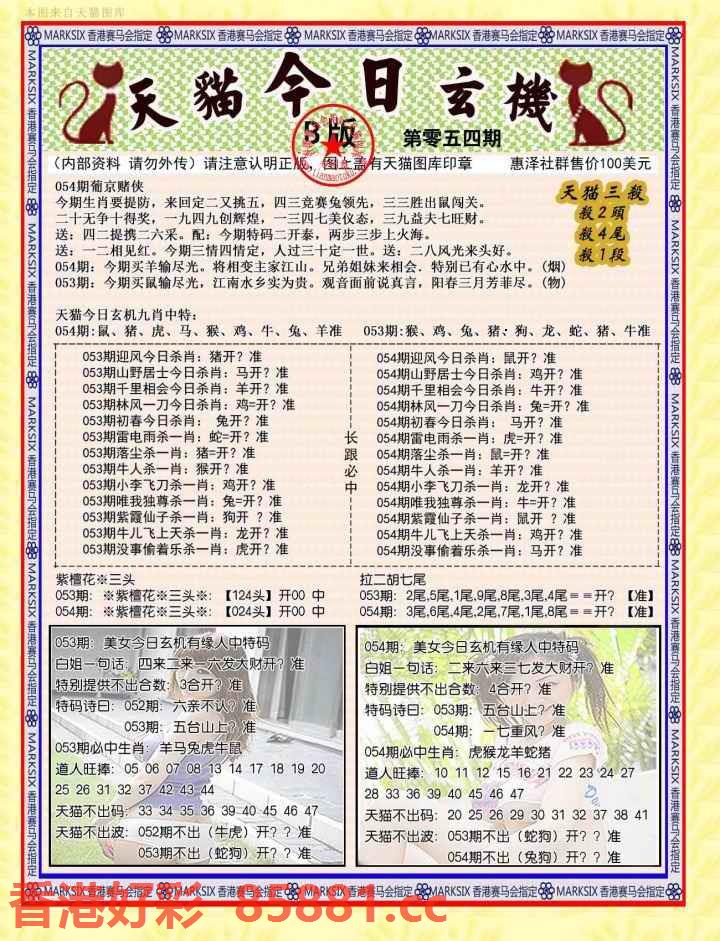 本图来自天猫图库
MARKSIX 香港赛马会指定 MARKSIX 香港赛马会指定 MARKSIX 香港赛马会指定 MARKSIX 香港赛马会指定 MARKSIX 香港赛马会指定
天猫今日玄機
B版
第零五四期
（内部资料 请勿外传）请注意认明正版，图上盖有天猫图库印章 惠泽社群售价100美元
054期葡京赌侠
今期生肖要提防，来回定二又挑五，四三竞赛兔领先，三三胜出鼠闯关。
二十无争十得奖，一九四九创辉煌，一三四七美仪态，三九益夫七旺财。
送：四二提携二六采。配：今期特码二开泰，两步三步上火海。
送：一二相见红。今期三情四情定，人过三十定一世。送：二八风光来头好。
054期：今期买羊输尽光。将相变主家江山。兄弟姐妹来相会．特别已有心水中。（烟）
053期：今期买鼠输尽光，江南水乡实为贵。观音面前说真言，阳春三月芳菲尽。（物）
天猫三殺
殺2頭
殺4尾
殺1段
天猫今日玄机九肖中特：
054期:鼠、猪、虎、马、猴、鸡、牛、兔、羊准 053期:猴、鸡、兔、猪:狗、龙、蛇、猪、牛准
053期迎风今日杀肖：猪开？准
053期山野居士今日杀肖：马开？准
053期千里相会今日杀肖：羊开？准
053期林风一刀今日杀肖：鸡=开？准
053期初春今日杀肖： 兔开？准
053期雷电雨杀一肖：蛇=开？准
053期落尘杀一肖：猪=开？准
053期牛人杀一肖：猴开？准
053期小李飞刀杀一肖：鸡开？准
053期唯我独尊杀一肖：兔=开？准
053期紫霞仙子杀一肖：狗开 ？准
053期牛儿飞上天杀一肖：龙开？准
053期没事偷着乐杀一肖：虎开？准
长跟必中
054期迎风今日杀肖：鼠开？准
054期山野居士今日杀肖：鸡开？准
054期千里相会今日杀肖：牛开？准
054期林风一刀今日杀肖：兔=开？准
054期初春今日杀肖： 马开？准
054期雷电雨杀一肖：虎=开？准
054期落尘杀一肖：鼠=开？准
054期牛人杀一肖：羊开？准
054期小李飞刀杀一肖：龙开？准
054期唯我独尊杀一肖：牛=开？准
054期紫霞仙子杀一肖：鼠开 ？准
054期牛儿飞上天杀一肖：鸡开？准
054期没事偷着乐杀一肖：马开？准
紫檀花※三头
053期：※紫檀花※三头※:【124头】开00 中
054期：※紫檀花※三头※:【024头】开00 中
拉二胡七尾
053期：2尾,5尾,1尾,9尾,8尾,3尾,4尾＝＝开？【准】
054期：3尾,6尾,4尾,2尾,7尾,1尾,8尾＝＝开？【准】
053期：美女今日玄机有缘人中特码
白姐一句话：四来二来一六发大财开？准
特别提供不出合数：3合开？准
特码诗曰：052期：六亲不认？准
053期：五台山上？准
053期必中生肖：羊马兔虎牛鼠
道人旺捧：05 06 07 08 13 14 17 18 19 20
25 26 31 32 37 42 43 44
天猫不出码：33 34 35 36 39 40 45 46 47
天猫不出波：052期不出（牛虎）开？？准
053期不出（蛇狗）开？？准
054期：美女今日玄机有缘人中特码
白姐一句话：二来六来三七发大财开？准
特别提供不出合数：4合开？准
特码诗曰：053期：五台山上？准
054期：一七重风？准
054期必中生肖：虎猴龙羊蛇猪
道人旺捧：10 11 12 15 16 21 22 23 24 27
28 33 36 39 40 45 46 47
天猫不出码：20 25 26 29 30 31 32 37 38 41
天猫不出波：053期不出（蛇狗）开？？准
054期不出（兔狗）开？？准
MARKSIX 香港赛马会指定 MARKSIX 香港赛马会指定 MARKSIX 香港赛马会指定 MARKSIX 香港赛马会指定 MARKSIX 香港赛马会指定
香港好彩 85881.cc